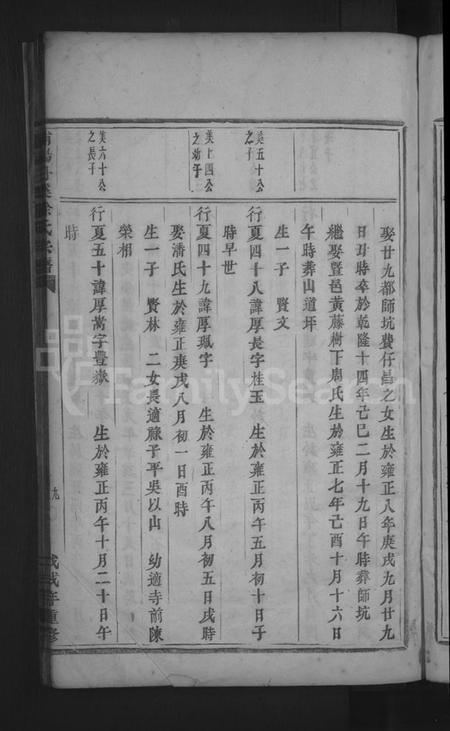 娶廿九都師坑費仔昌之女生於雍正八年庚戌九月廿九
日丑時卒於乾隆十四年己巳二月十九日午時葬師坑
繼娶暨邑黃藤樹下周氏生於雍正七年己酉十月十六日
午時葬山道坪
生一子 賢文
美五十公之子
行夏四十八諱厚長字桂玉 生於雍正丙午五月初十日子
時早世
美上四公之幼子
行夏四十九諱厚珮字 生於雍正丙午八月初五日戌時
娶潘氏生於雍正庚戌八月初一日酉時
生一子 賢林 二女長適祿子平吳以山 幼適寺前陳
榮相
美六十公之長子
行夏五十諱厚嵩字豐嶽 生於雍正丙午十月二十日午
時
氏宗譜
九
戊戌年重修
FamilySearch